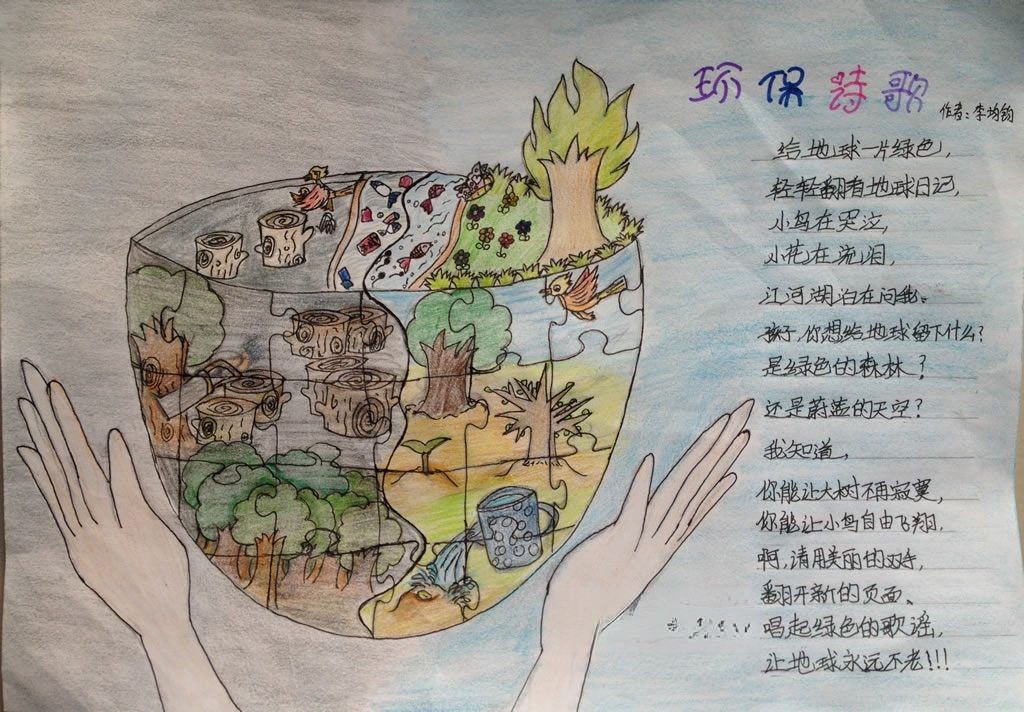 环保诗歌
作者：李均钧
给地球一片绿色，
轻轻翻看地球日记，
小鸟在哭泣，
小花在流泪，
江河湖泊在问我、
孩子，你想给地球留下什么？
是绿色的森林？
还是蔚蓝的天空？
我知道，
你能让大树不再寂寞，
你能让小鸟自由飞翔，
啊，请用美丽的双手，
翻开新的页面、
唱起绿色的歌谣，
让地球永远不老！！！